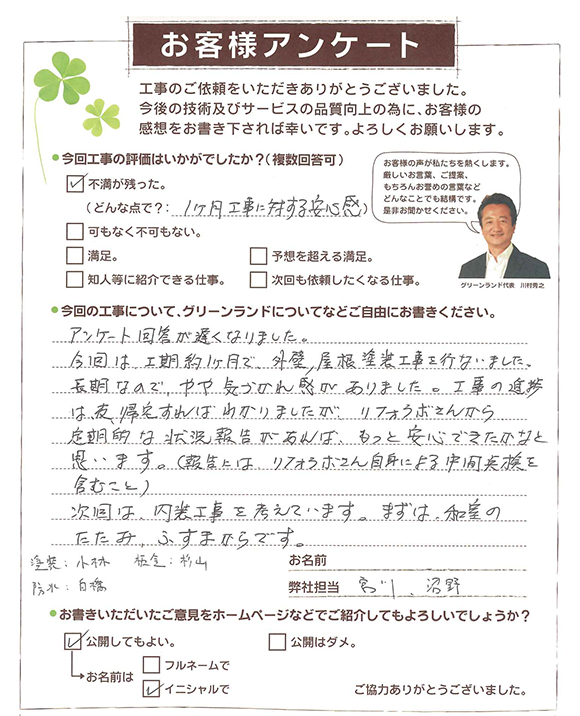 お客様アンケート
工事のご依頼をいただきありがとうございました。
今後の技術及びサービスの品質向上の為に、お客様の
感想をお書き下されば幸いです。よろしくお願いします。
●今回工事の評価はいかがでしたか?(複数回答可)
不満が残った。
(どんな点で?: 1ヶ月工事に対する安心感)
可もなく不可もない。
満足。
予想を超える満足。
知人等に紹介できる仕事。
次回も依頼したくなる仕事。
お客様の声が私たちを熱くします。
厳しいお言葉、ご提案、
もちろんお誉めの言葉など
どんなことでも結構です。
是非お聞かせください。
グリーンランド代表 川村秀之
●今回の工事について、グリーンランドについてなどご自由にお書きください。
アンケート回答が遅くなりました。
今回は、工期約1ヶ月で、外壁,屋根塗装工事を行ないました。
長期なので、やや気づかれ感がありました。工事の進捗
は夜、帰宅すればわかりましたが、リフォラボさんから
定期的な状況報告があれば、もっと安心できたかなと
思います。(報告には、リフォラボさん自身による中間点検を
含むこと)
次回は、内装工事を考えています。まずは、和室の
たたみ、ふすまからです。
塗装:小林 板金:杉山
防水:白橋
お名前
弊社担当 宮川、沼野
●お書きいただいたご意見をホームページなどでご紹介してもよろしいでしょうか?
公開してもよい。
公開はダメ。
お名前は
フルネームで
イニシャルで
ご協力ありがとうございました。